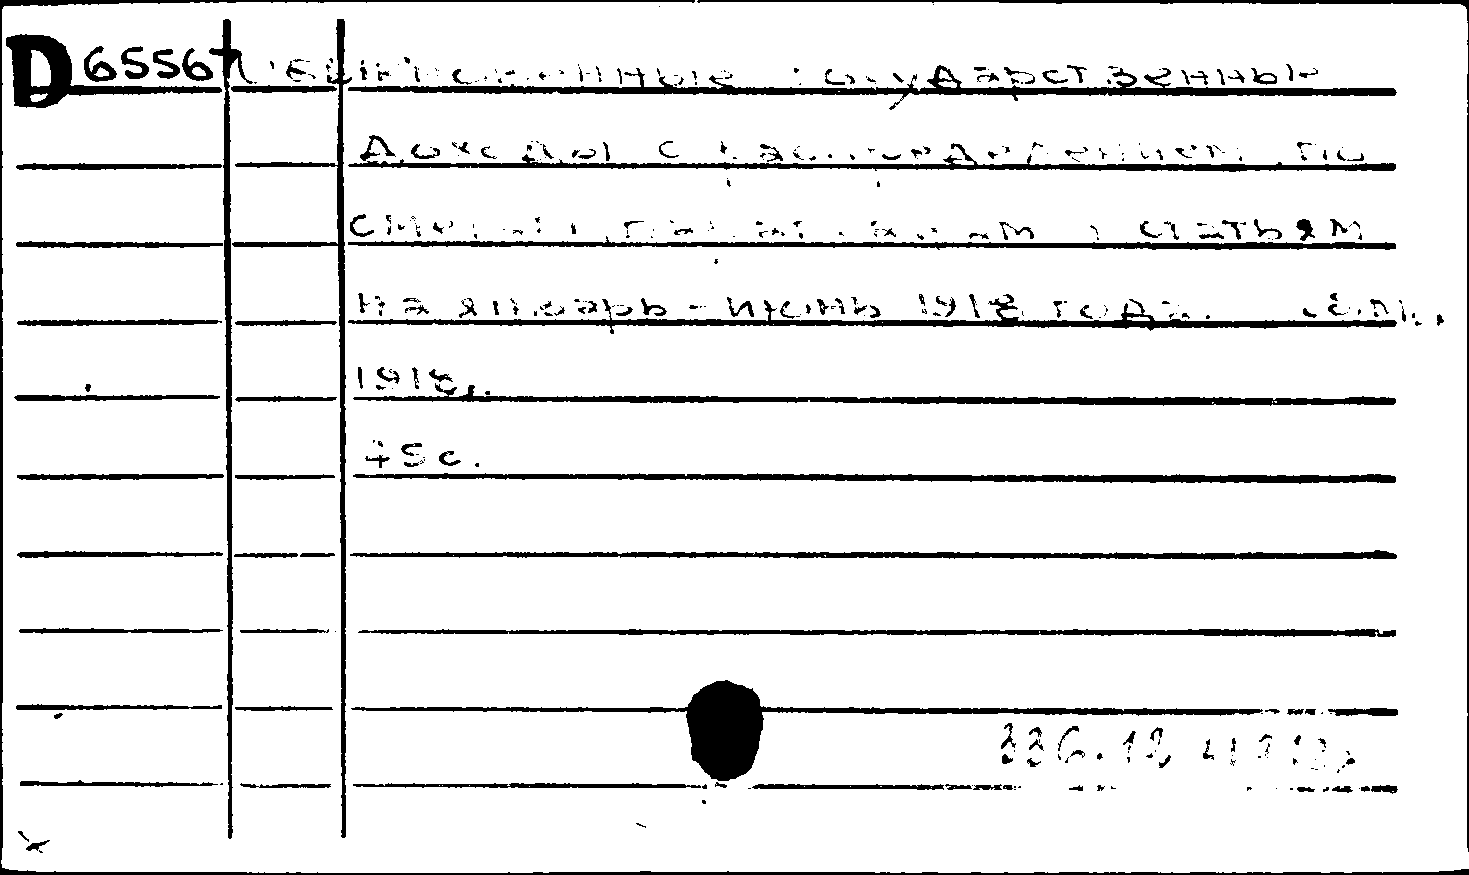 D 65567 Обыкновенные государственные
доходы с распределением по
сметам, параграфам и статьям
на январь-июнь 1918 года.
1918.
75 с.
336.12